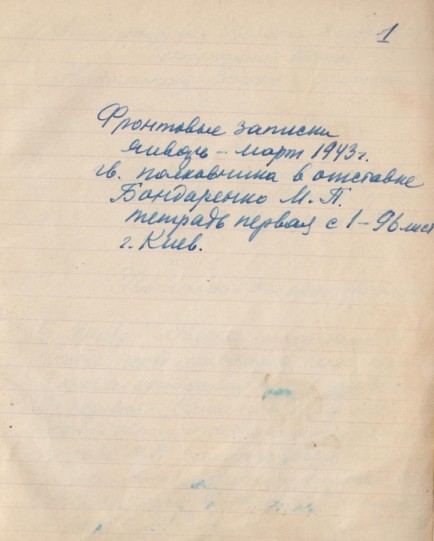 1
Фронтовые записки
январь – март 1943 г.
гв. полковника в отставке
Бондаренко М. П.
тетрадь первая с 1–96 лист
г. Киев.